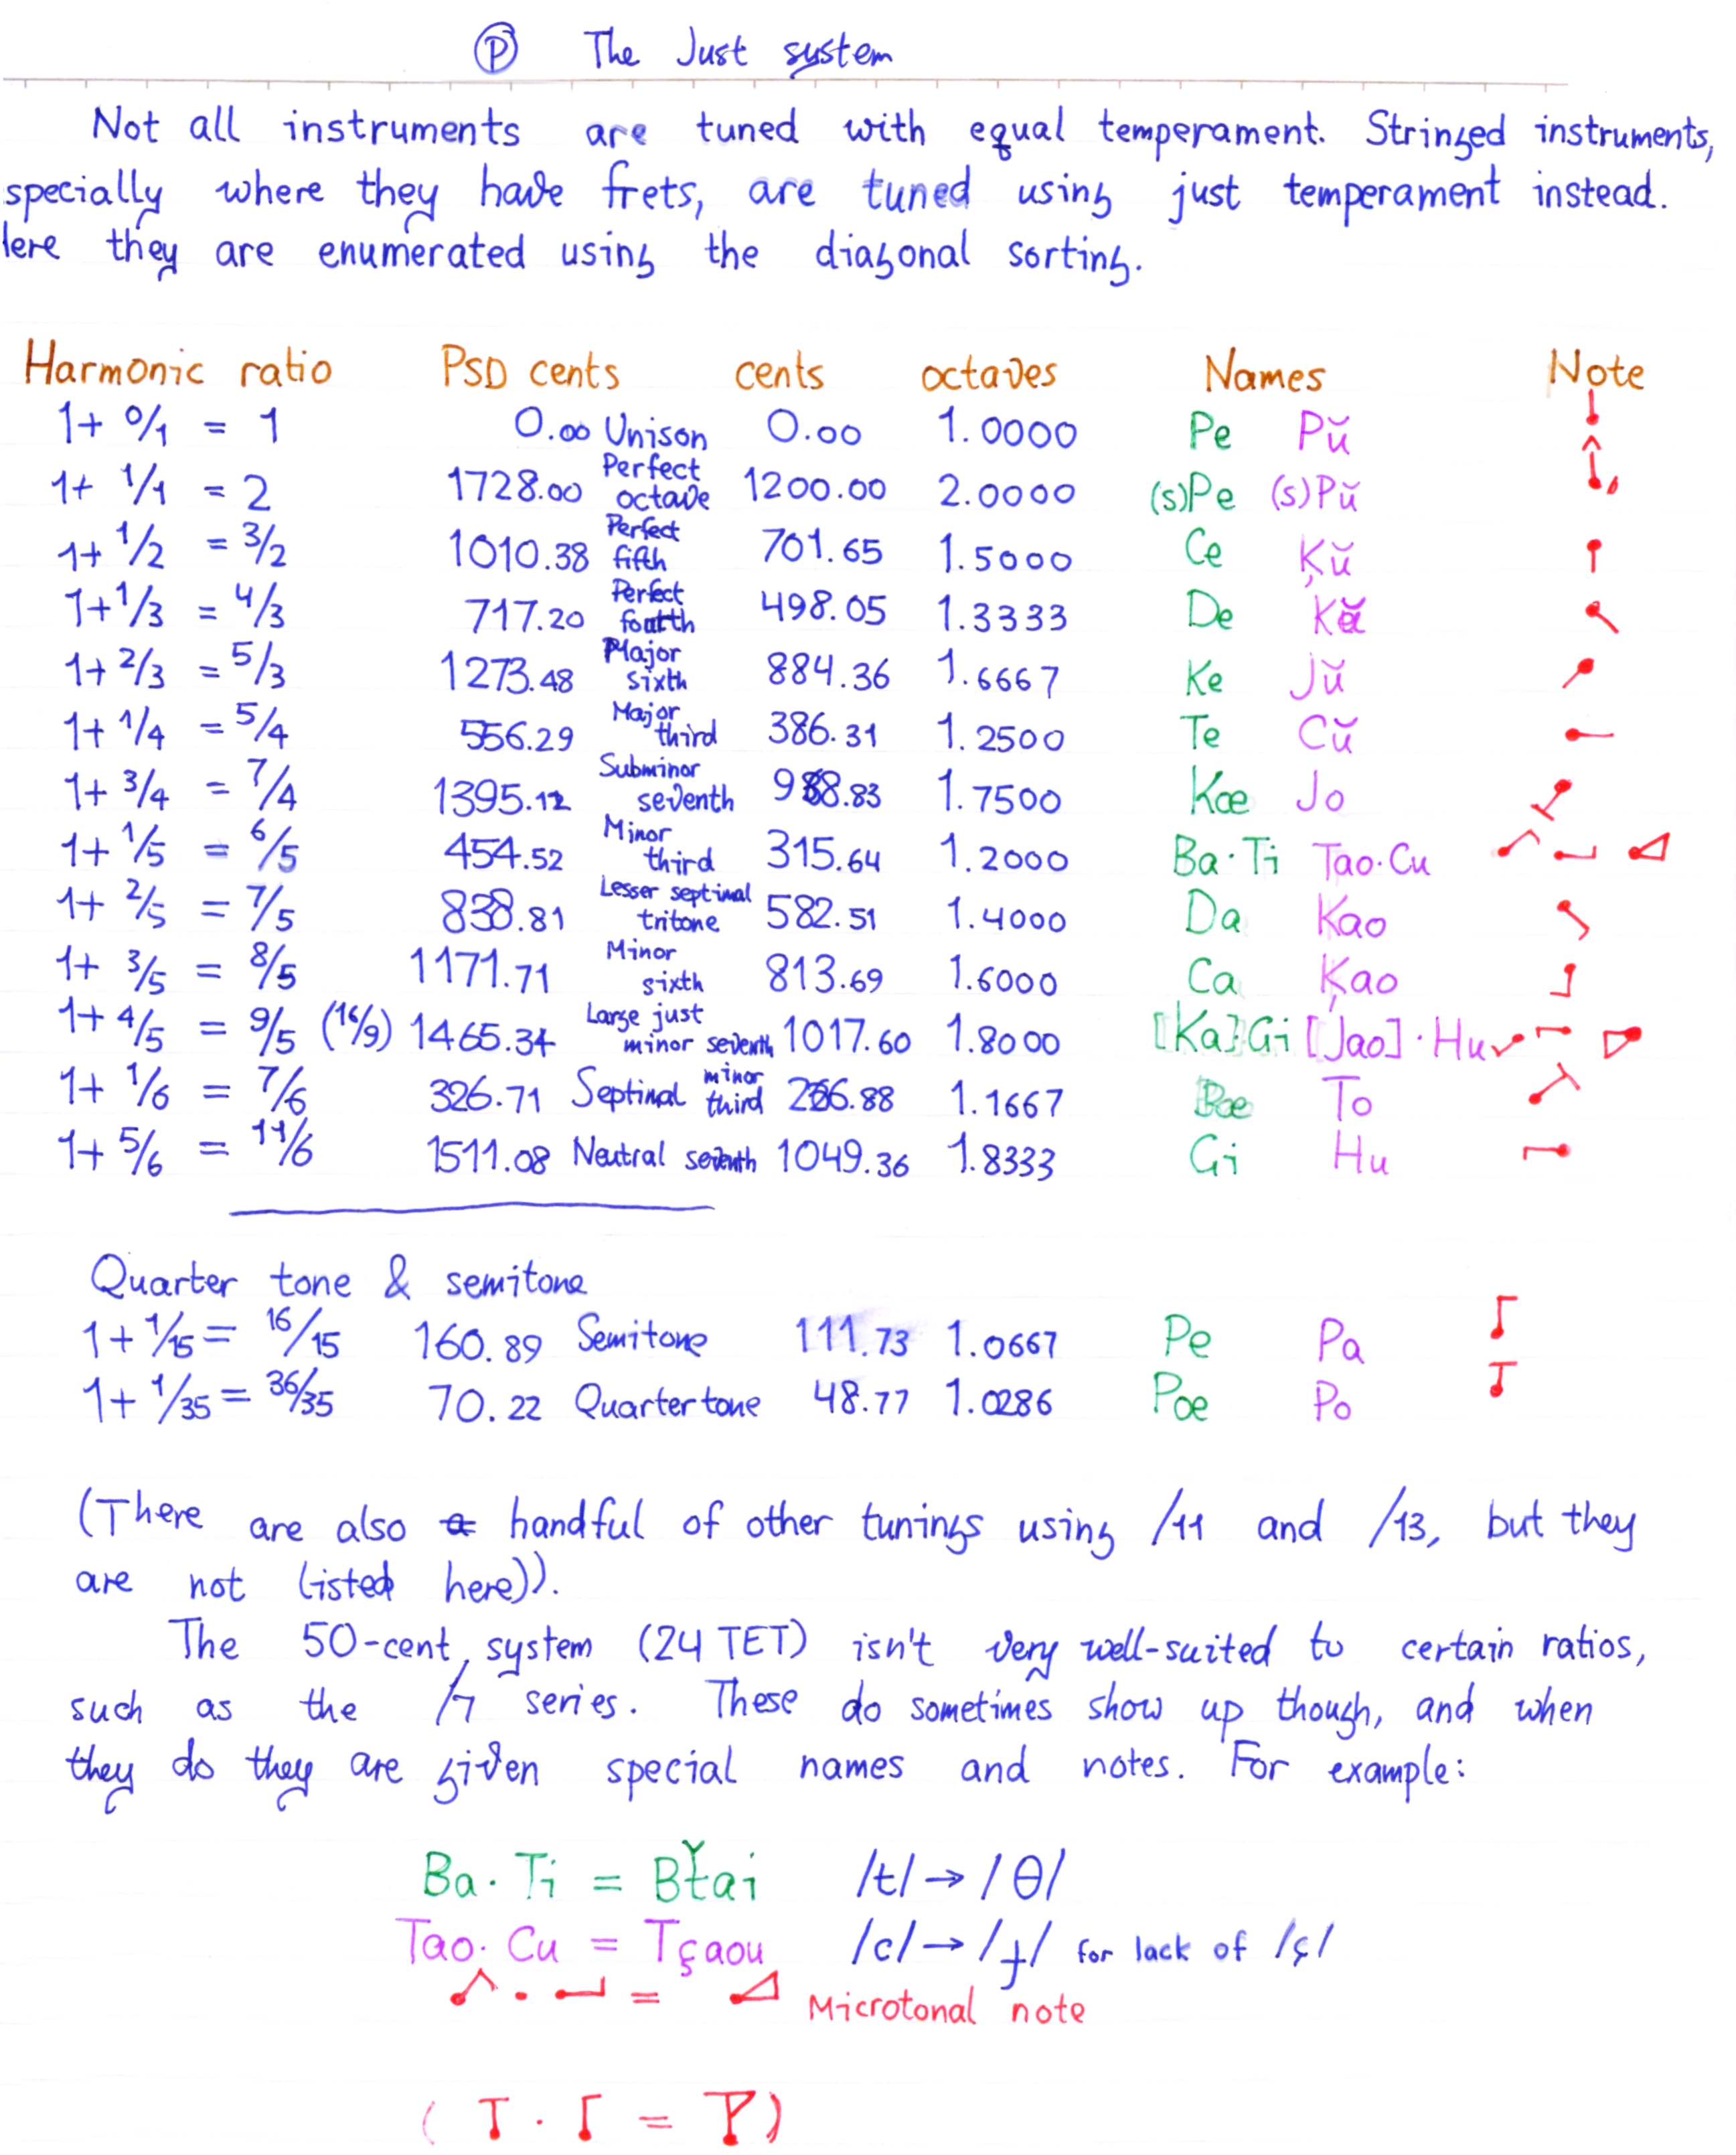 Ⓟ The Just system
Not all instruments are tuned with equal temperament. Stringed instruments,
specially where they have frets, are tuned using just temperament instead.
lere they are enumerated using the diagonal sorting.
Harmonic ratio PSD cents cents octaves Names Note
1+ 0/1 = 1 0.00 Unison 0.00 1.0000 Pe Pŭ
1+ 1/1 = 2 1728.00 Perfect octave 1200.00 2.0000 (s)Pe (s)Pŭ
1+ 1/2 = 3/2 1010.38 Perfect fifth 701.65 1.5000 Ce Ķŭ
1+1/3 = 4/3 717.20 Perfect fourth 498.05 1.3333 De
1+ 2/3 = 5/3 1273.48 Major sixth 884.36 1.6667 Ke Jŭ
1+ 1/4 = 5/4 556.29 Major third 386.31 1.2500 Te Cŭ
1+ 3/4 = 7/4 1395.12 Subminor seventh 1.7500 Kœ Jo
1+ 1/5 = 6/5 454.52 Minor third 315.64 1.2000 Ba·Ti Tao·Cu
1+ 2/5 = 7/5 838.81 Lesser septimal tritone 582.51 1.4000 Da Kao
1+ 3/5 = 8/5 1171.71 Minor sixth 813.69 1.6000 Ca Ķao
1+ 4/5 = 9/5 (16/9) 1465.34 Large just minor seventh 1017.60 1.8000 [Ka]·Gi [Jao]·Hu
1+ 1/6 = 7/6 326.71 Septimal minor third 1.1667 Bœ To
1+ 5/6 = 11/6 1511.08 Neutral seventh 1049.36 1.8333 Gi Hu
Quarter tone & semitone
1+1/15 = 16/15 160.89 Semitone 111.73 1.0667 Pe Pa
1+ 1/35 = 36/35 70.22 Quartertone 48.77 1.0286 Pœ Po
(There are also a handful of other tunings using /11 and /13, but they
are not listed here)).
The 50-cent system (24 TET) isn't very well-suited to certain ratios,
such as the /7 series. These do sometimes show up though, and when
they do they are given special names and notes. For example:
Ba·Ti = Bťai /t/→/θ/
Tao·Cu = Tçaou /c/→/ɟ/ for lack of /ç/
· = Microtonal note
( · = )